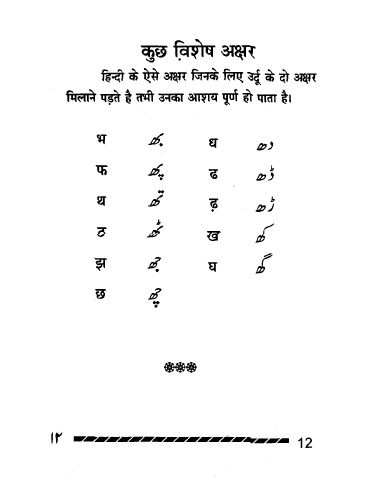 कुछ विशेष अक्षर
हिन्दी के ऐसे अक्षर जिनके लिए उर्दू के दो अक्षर
मिलाने पड़ते है तभी उनका आशय पूर्ण हो पाता है।
भ بھ ध دھ
फ پھ ढ ڈھ
थ تھ ढ़ ڑھ
ठ ٹھ ख کھ
झ جھ घ گھ
छ چھ
۱۲ 12